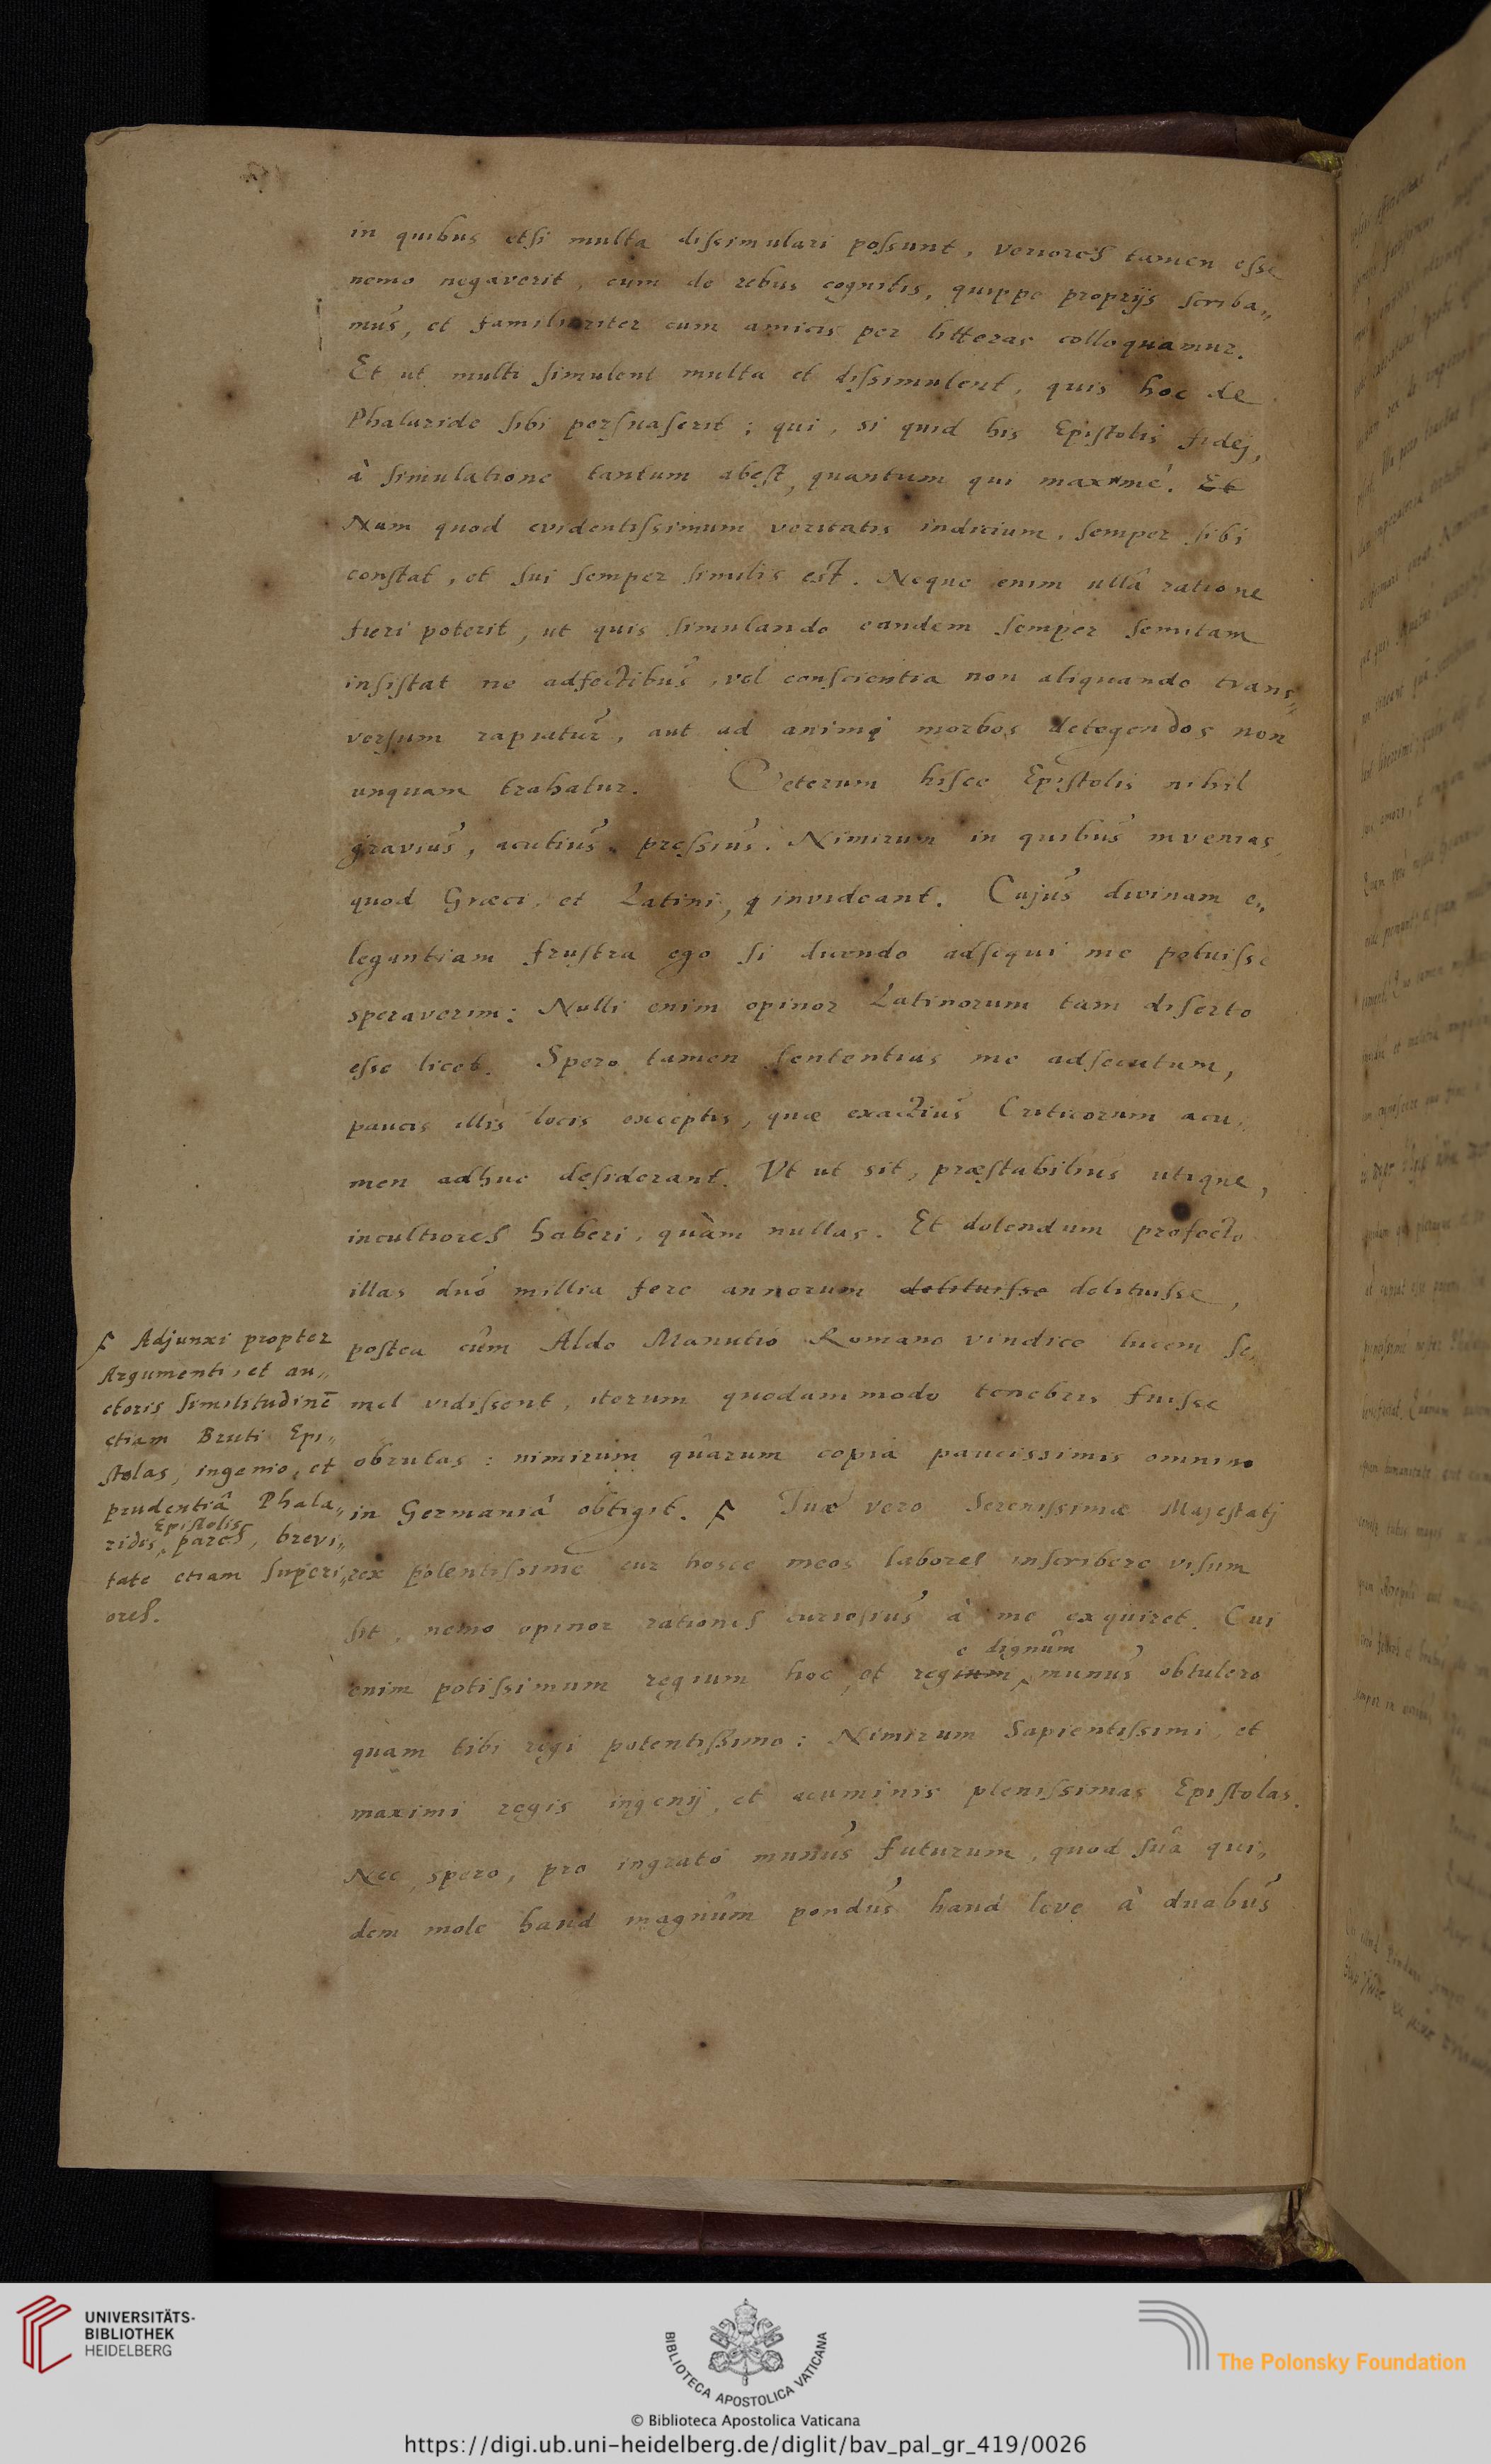 in quibus etsi multa dissimulari possunt, veriores tamen esse
nemo negaverit, cum de rebus cognitis, quippe proprijs scriba„
mus, et familiariter cum amicis per litteras colloquamur.
Et ut multi simulent multa et dissimulent, quis hoc de
Phalaride sibi persuaserit ; qui, si quid his Epistolis fidej,
à simulatione tantum abest, quantum qui maximè. Et
Nam quod evidentissimum veritatis indicium, semper sibi
constat, et sui semper similis est. Neque enim ullâ ratione
fieri poterit, ut quis simulando eandem semper semitam
insistat ne adfectibus, vel conscientia non aliquando trans„
versum rapiatur, aut ad animi morbos detegendos non
unquam trahatur. Ceterum hisce Epistolis nihil
gravius, acutius, pressius. Nimirum in quibus invenias
quod Græci, et Latini, invideant. Cujus divinam e„
legantiam frustra ego si dicendo adsequi me potuisse
speraverim: Nulli enim opinor Latinorum tam diserto
esse licet. Spero tamen sententias me adsecutum,
paucis illis locis exceptis, quæ exactius Criticorum acu„
men adhuc desiderant. Ut ut sit, præstabilius utique,
incultiores haberi, quàm nullas. Et dolendum profecto
illas duo millia fere annorum delituisse delituisse,
postea cum Aldo Manutio Romano vindice lucem se„
mel vidissent, iterum quodammodo tenebris fuisse
obrutas : nimirum quarum copia paucissimis omnino
in Germaniâ obtigit. Ƒ Tuæ vero Serenissimæ Majestatj
rex potentissime cur hosce meos labores inscribere visum
sit, nemo opinor rationes curiosius à me exquiret. Cui
e dignum
enim potissimum regium hoc, et regium munus obtulero
quam tibi regi potentissimo : Nimirum Sapientissimi, et
maximi regis ingenij, et acuminis plenissimas Epistolas.
Nec spero, pro ingrato munus futurum, quod suâ qui„
dem mole haud magnum pondus haud leve à duabus
Ƒ Adjunxi propter
Argumenti, et au„
ctoris similitudinē
etiam Bruti Epi„
stolas, ingenio, et
prudentiâ Phala„
Epistolis
ridis pares, brevi„
tate etiam superi„
ores.
UNIVERSITÄTS-
BIBLIOTHEK
HEIDELBERG
BIBLIOTECA APOSTOLICA VATICANA
The Polonsky Foundation
© Biblioteca Apostolica Vaticana
https://digi.ub.uni-heidelberg.de/diglit/bav_pal_gr_419/0026